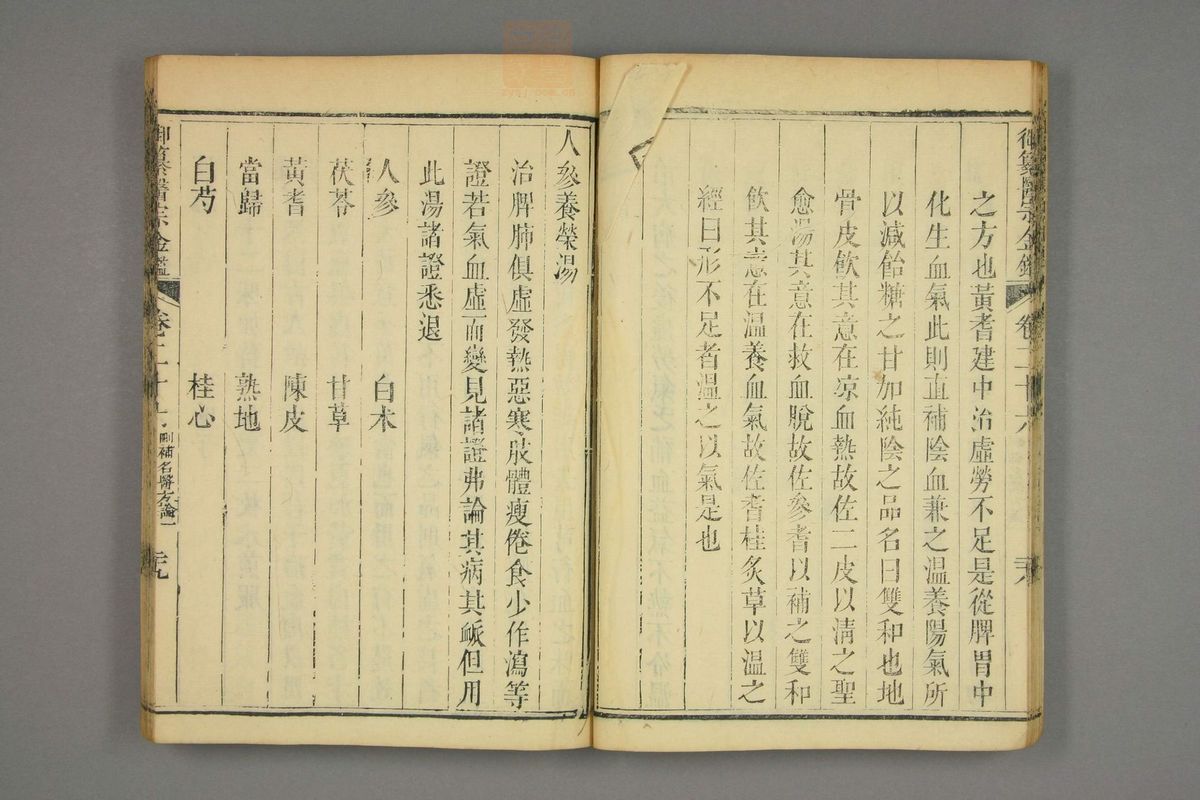 御纂醫宗金鑑 卷二十六
之方也黃耆建中治虛勞不足是從脾胃中
化生血氣此則直補陰血兼之溫養陽氣所
以減飴糖之甘加純陰之品名曰雙和也地
骨皮飲其意在凉血熱故佐二皮以清之聖
愈湯其意在救血脫故佐參耆以補之雙和
飲其意在溫養血氣故佐耆桂炙草以溫之
經曰形不足者溫之以氣是也
人參養榮湯
治脾肺俱虛發熱惡寒肢體瘦倦食少作瀉等
證若氣血虛而變見諸證弗論其病其脈但用
此湯諸證悉退
人參 白朮
茯苓 甘草
黃耆 陳皮
當歸 熟地
白芍 桂心
御纂醫宗金鑑 卷二十六 刪補名醫方論一